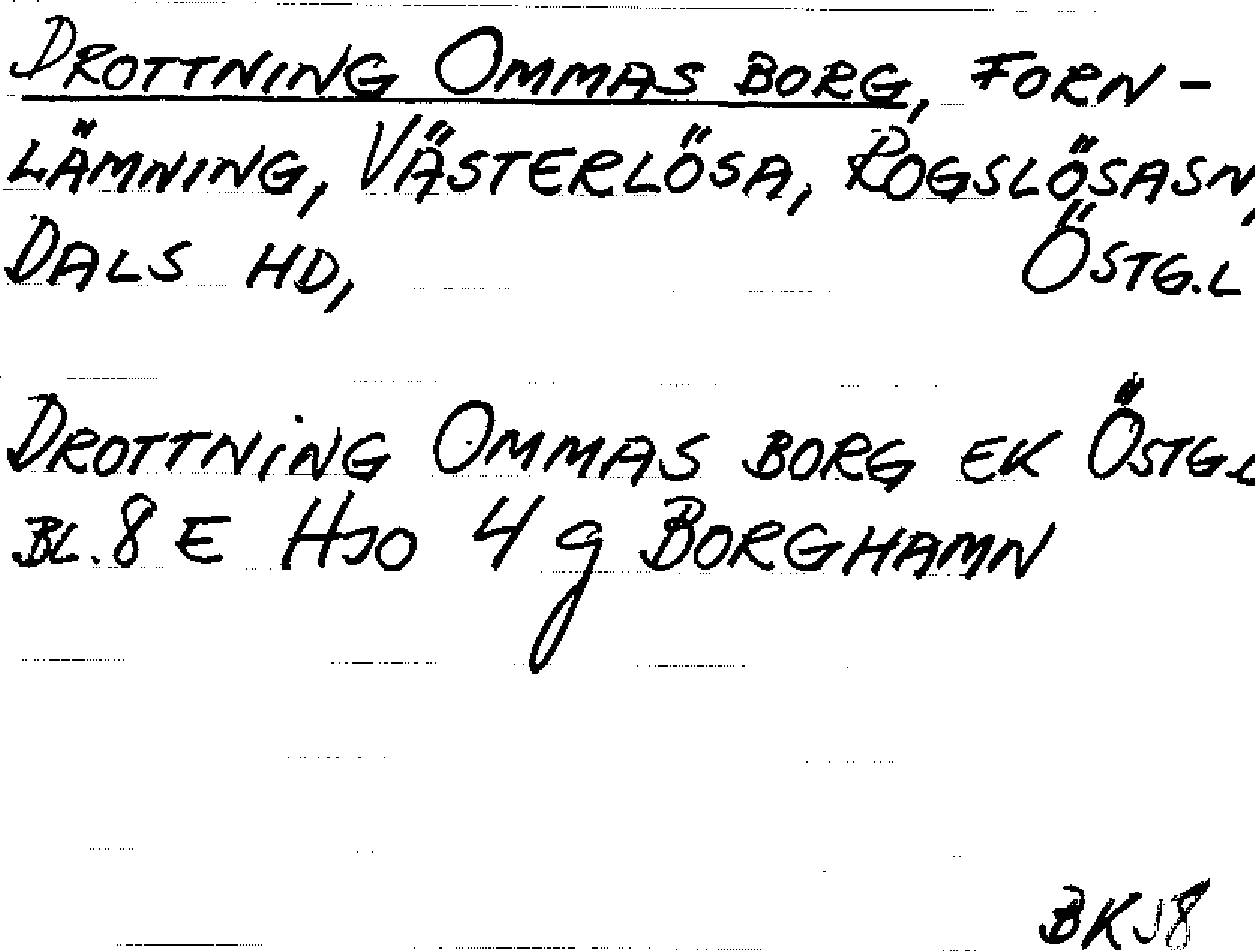 DROTTNING OMMAS BORG, FORN-
LÄMNING, VÄSTERLÖSA, ROGSLÖSASN,
DALS HD, ÖSTG.L
DROTTNING OMMAS BORG EK ÖSTG.L
BL. 8 E HJO 4 g BORGHAMN